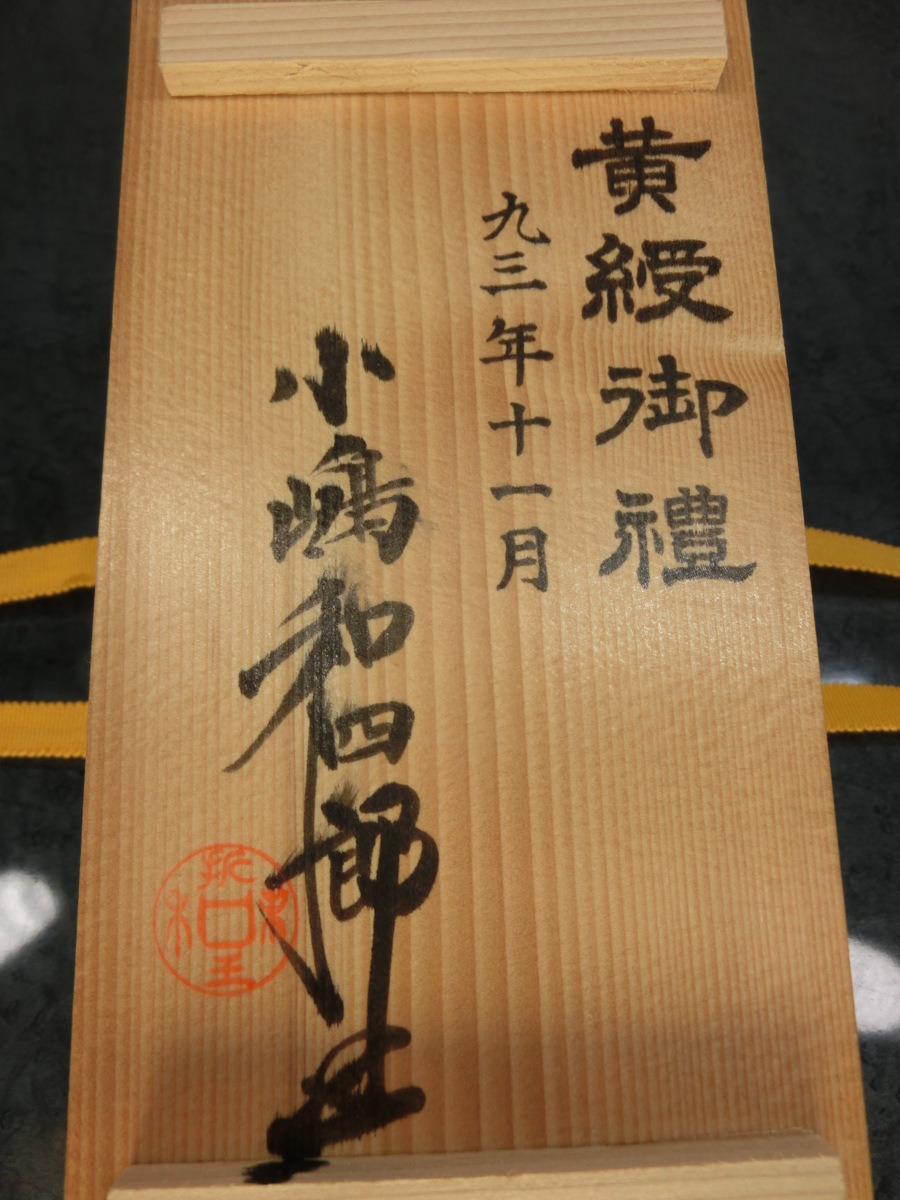 黄綬御禮
九三年十一月
小嶋和四郎